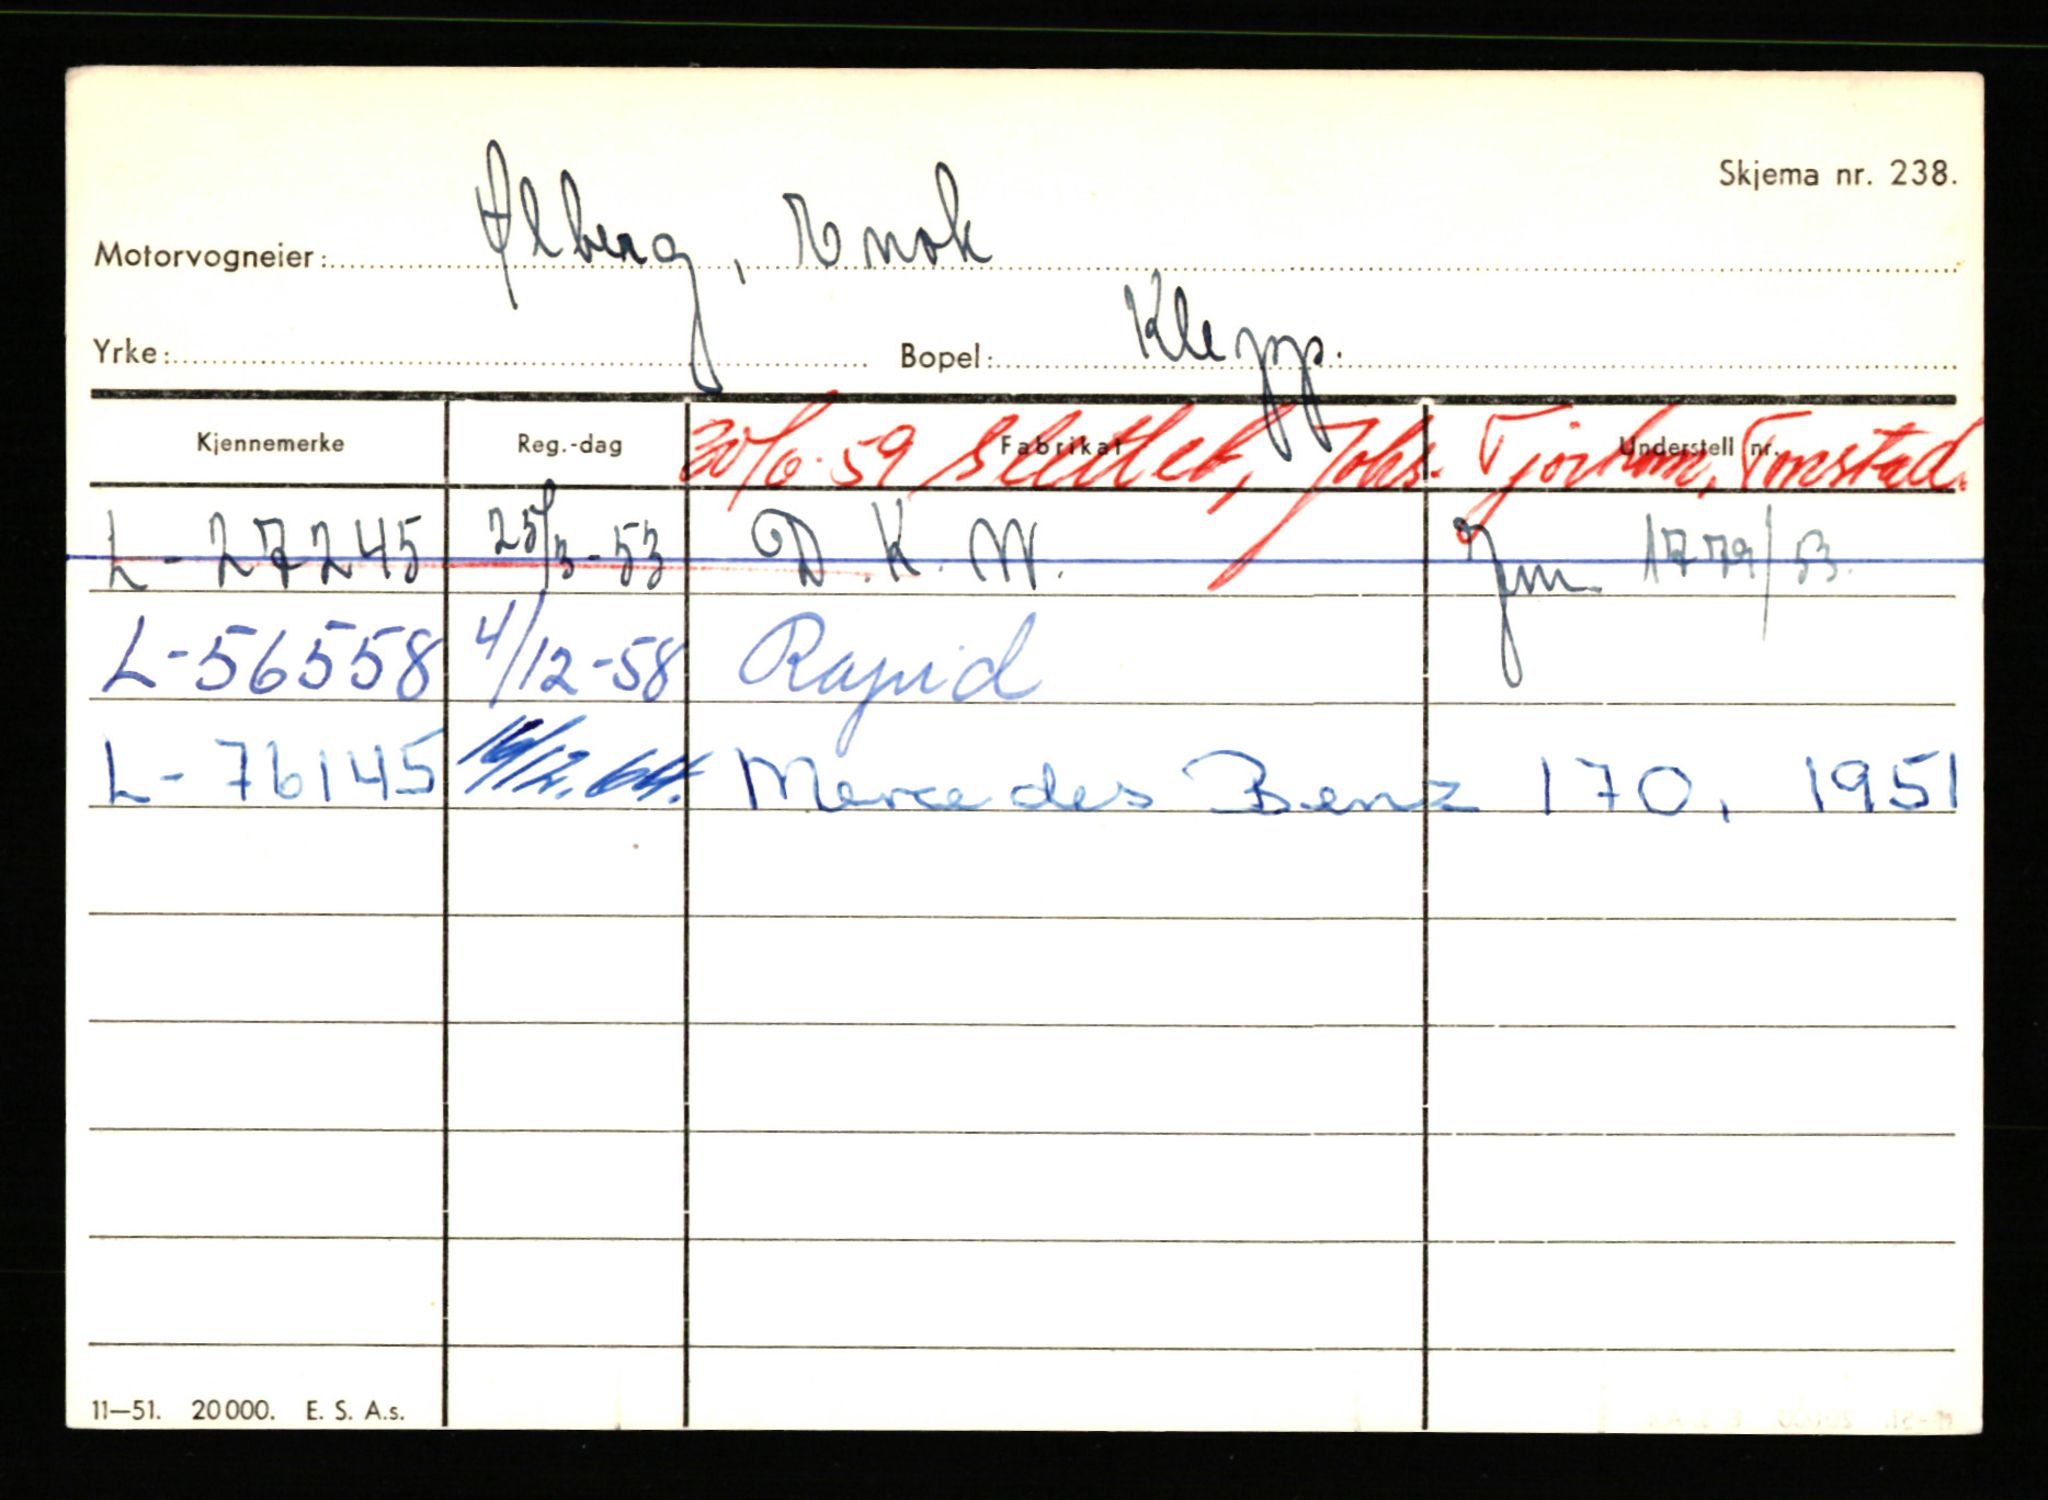 Skjema nr. 238.
Motorvogneier: Ølberg, Enok
Yrke: Bopel: Klepp.
Kjennemerke Reg.-dag Fabrikat Understell nr.
30/6-59 slettet, Johs. Tjørhom, Tonstad.
L-27245 25/3-53 D.K.W. Jm. 1779/53.
L-56558 4/12-58 Rapid
L-76145 16/12.64. Mercedes Benz 170, 1951
11—51. 20000. E. S. A.s.